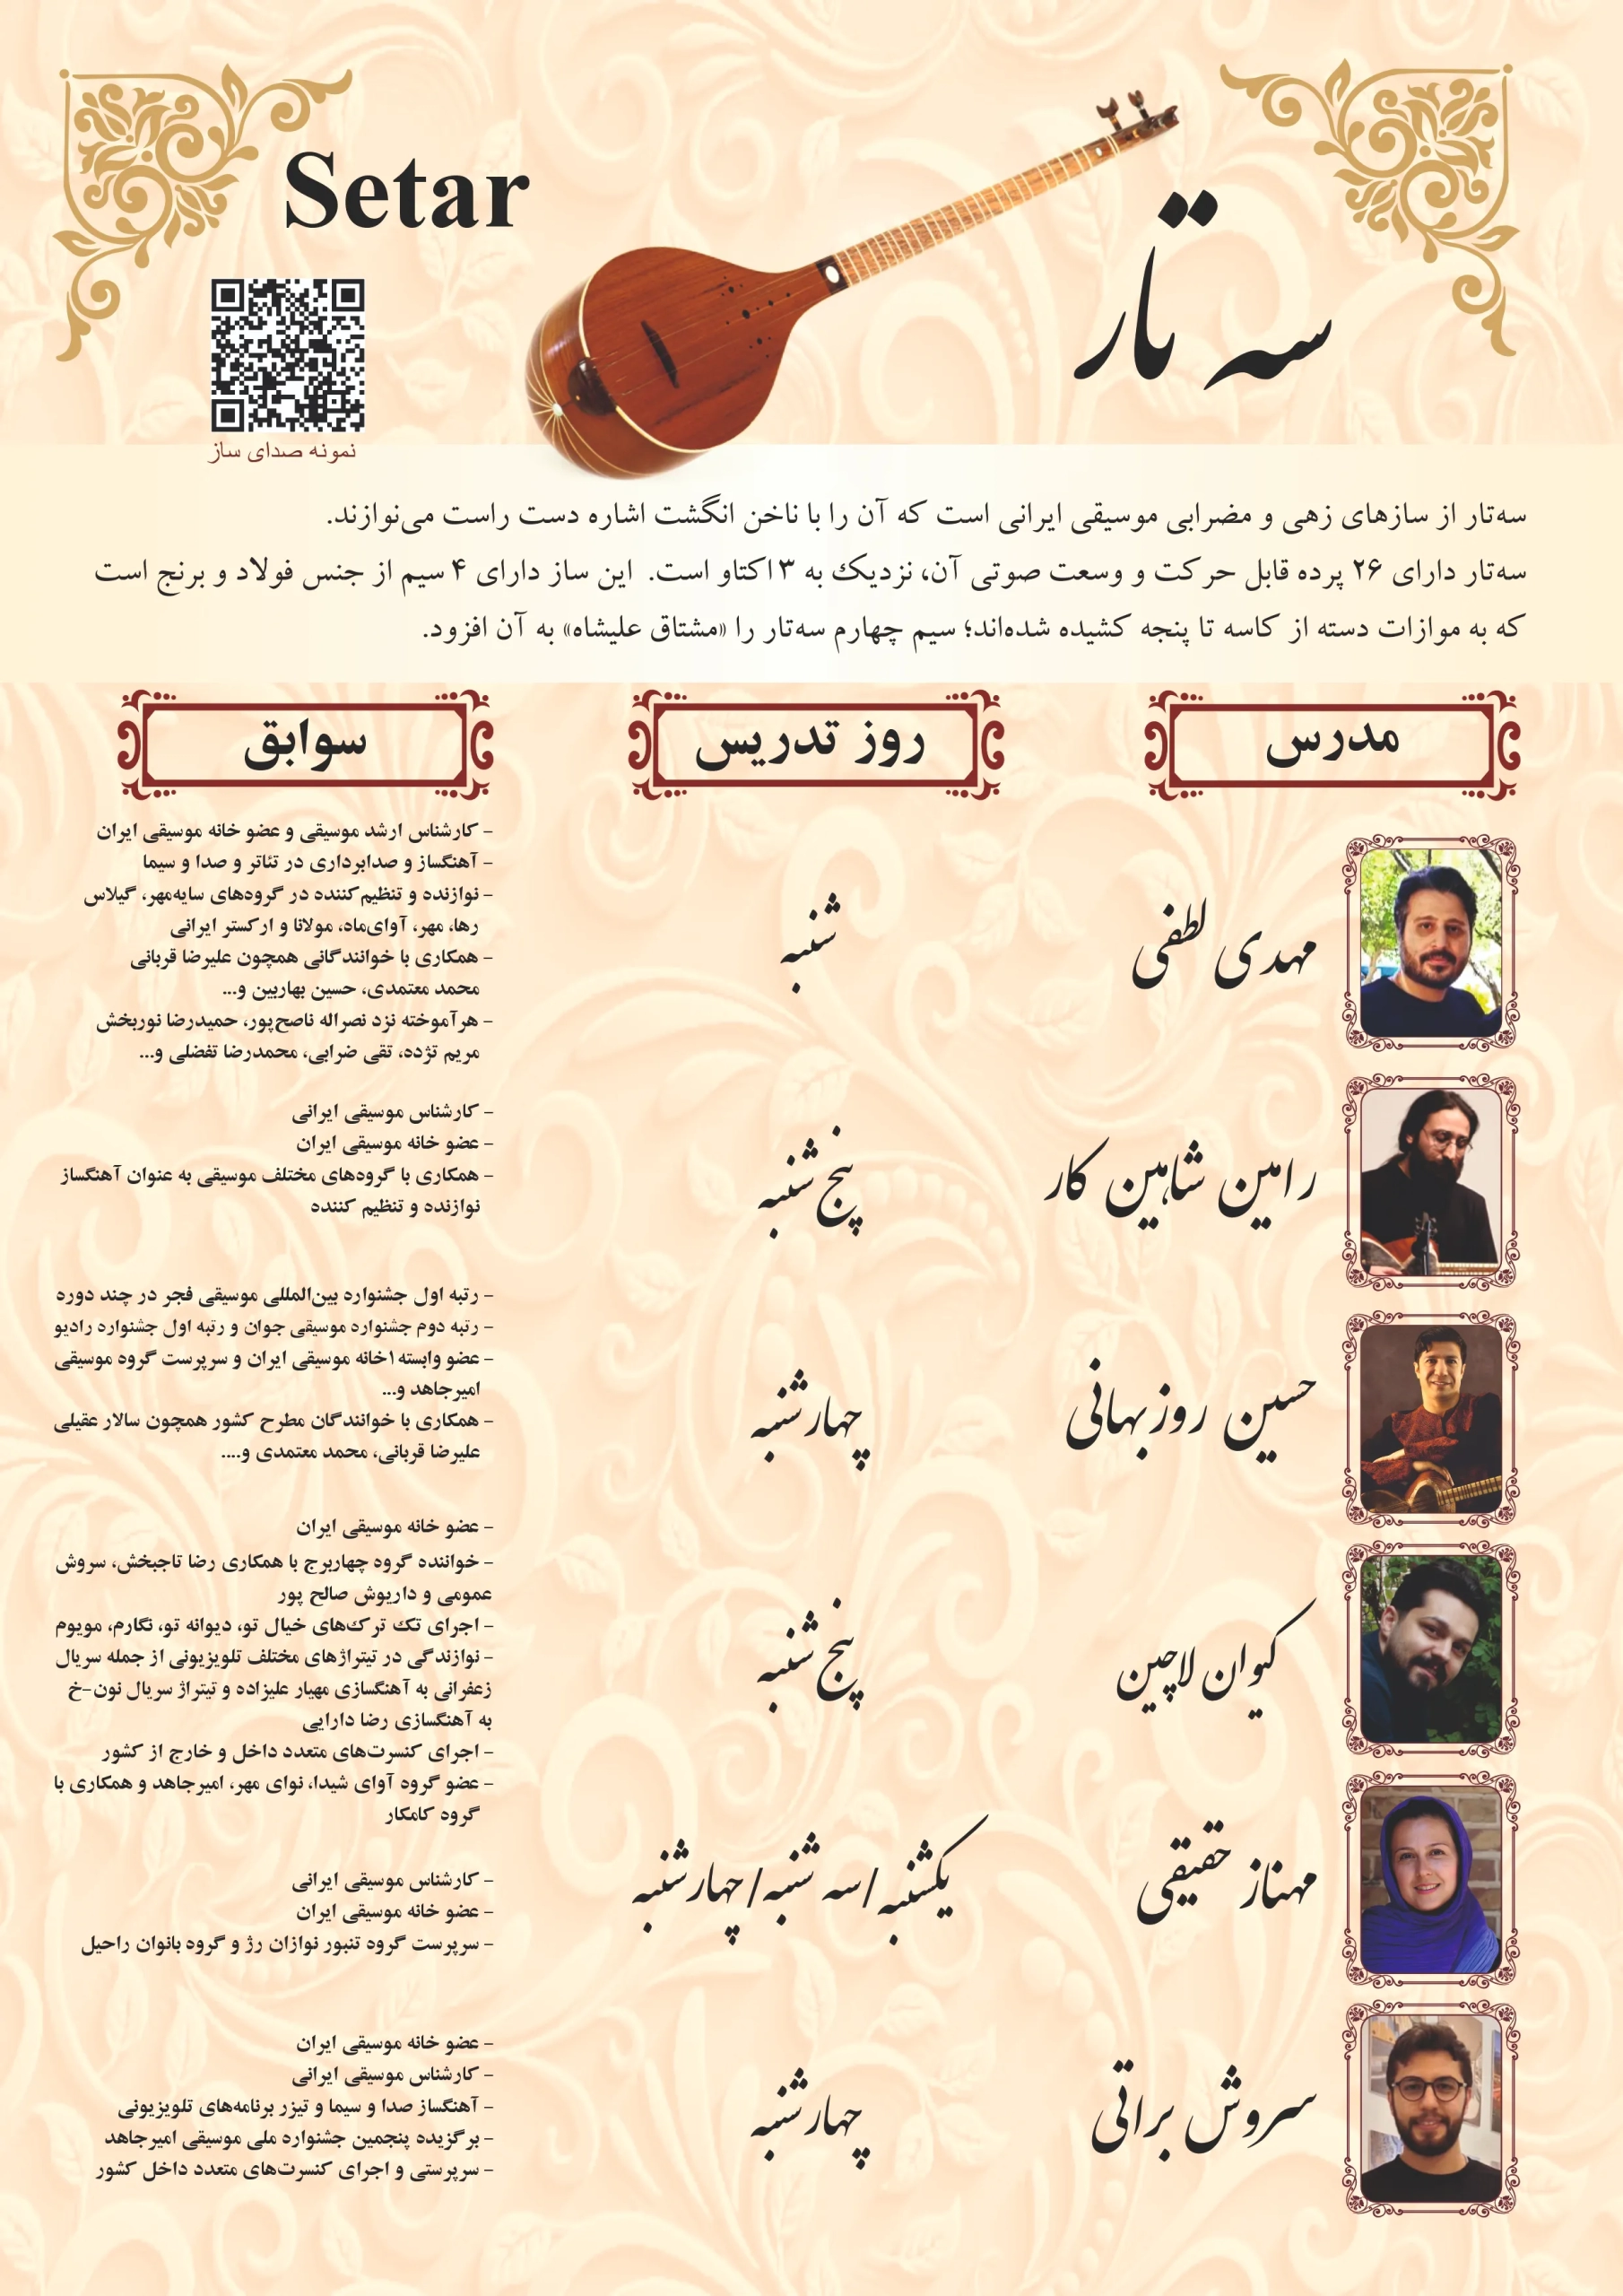 Setar
سه تار
نمونه صدای ساز
سه‌تار از سازهای زهی و مضرابی موسیقی ایرانی است که آن را با ناخن انگشت اشاره دست راست می‌نوازند.
سه‌تار دارای ۲۶ پرده قابل حرکت و وسعت صوتی آن، نزدیک به ۳ اکتاو است. این ساز دارای ۴ سیم از جنس فولاد و برنج است
که به موازات دسته از کاسه تا پنجه کشیده شده‌اند؛ سیم چهارم سه‌تار را «مشتاق علیشاه» به آن افزود.
مدرس
روز تدریس
سوابق
مهدی لطفی
شنبه
- کارشناس ارشد موسیقی و عضو خانه موسیقی ایران
- آهنگساز و صدابرداری در تئاتر و صدا و سیما
- نوازنده و تنظیم‌کننده در گروه‌های سایه‌مهر، گیلاس
رها، مهر، آوای‌ماه، مولانا و ارکستر ایرانی
- همکاری با خوانندگانی همچون علیرضا قربانی
محمد معتمدی، حسین بهاربین و...
- هرآموخته نزد نصراله ناصح‌پور، حمیدرضا نوربخش
مریم تژده، تقی ضرابی، محمدرضا تفضلی و...
رامین شاهین کار
پنج شنبه
- کارشناس موسیقی ایرانی
- عضو خانه موسیقی ایران
- همکاری با گروه‌های مختلف موسیقی به عنوان آهنگساز
نوازنده و تنظیم کننده
حسین روزبهانی
چهارشنبه
- رتبه اول جشنواره بین‌المللی موسیقی فجر در چند دوره
- رتبه دوم جشنواره موسیقی جوان و رتبه اول جشنواره رادیو
- عضو وابسته۱خانه موسیقی ایران و سرپرست گروه موسیقی
امیرجاهد و...
- همکاری با خوانندگان مطرح کشور همچون سالار عقیلی
علیرضا قربانی، محمد معتمدی و....
کیوان لاچین
پنج شنبه
- عضو خانه موسیقی ایران
- خواننده گروه چهاربرج با همکاری رضا تاجبخش، سروش
عمومی و داریوش صالح پور
- اجرای تک ترک‌های خیال تو، دیوانه تو، نگارم، مویوم
- نوازندگی در تیتراژهای مختلف تلویزیونی از جمله سریال
زعفرانی به آهنگسازی مهیار علیزاده و تیتراژ سریال نون-خ
به آهنگسازی رضا دارایی
- اجرای کنسرت‌های متعدد داخل و خارج از کشور
- عضو گروه آوای شیدا، نوای مهر، امیرجاهد و همکاری با
گروه کامکار
مهناز حقیقی
یکشنبه/سه شنبه/چهارشنبه
- کارشناس موسیقی ایرانی
- عضو خانه موسیقی ایران
- سرپرست گروه تنبور نوازان رژ و گروه بانوان راحیل
سروش براتی
چهارشنبه
- عضو خانه موسیقی ایران
- کارشناس موسیقی ایرانی
- آهنگساز صدا و سیما و تیزر برنامه‌های تلویزیونی
- برگزیده پنجمین جشنواره ملی موسیقی امیرجاهد
- سرپرستی و اجرای کنسرت‌های متعدد داخل کشور